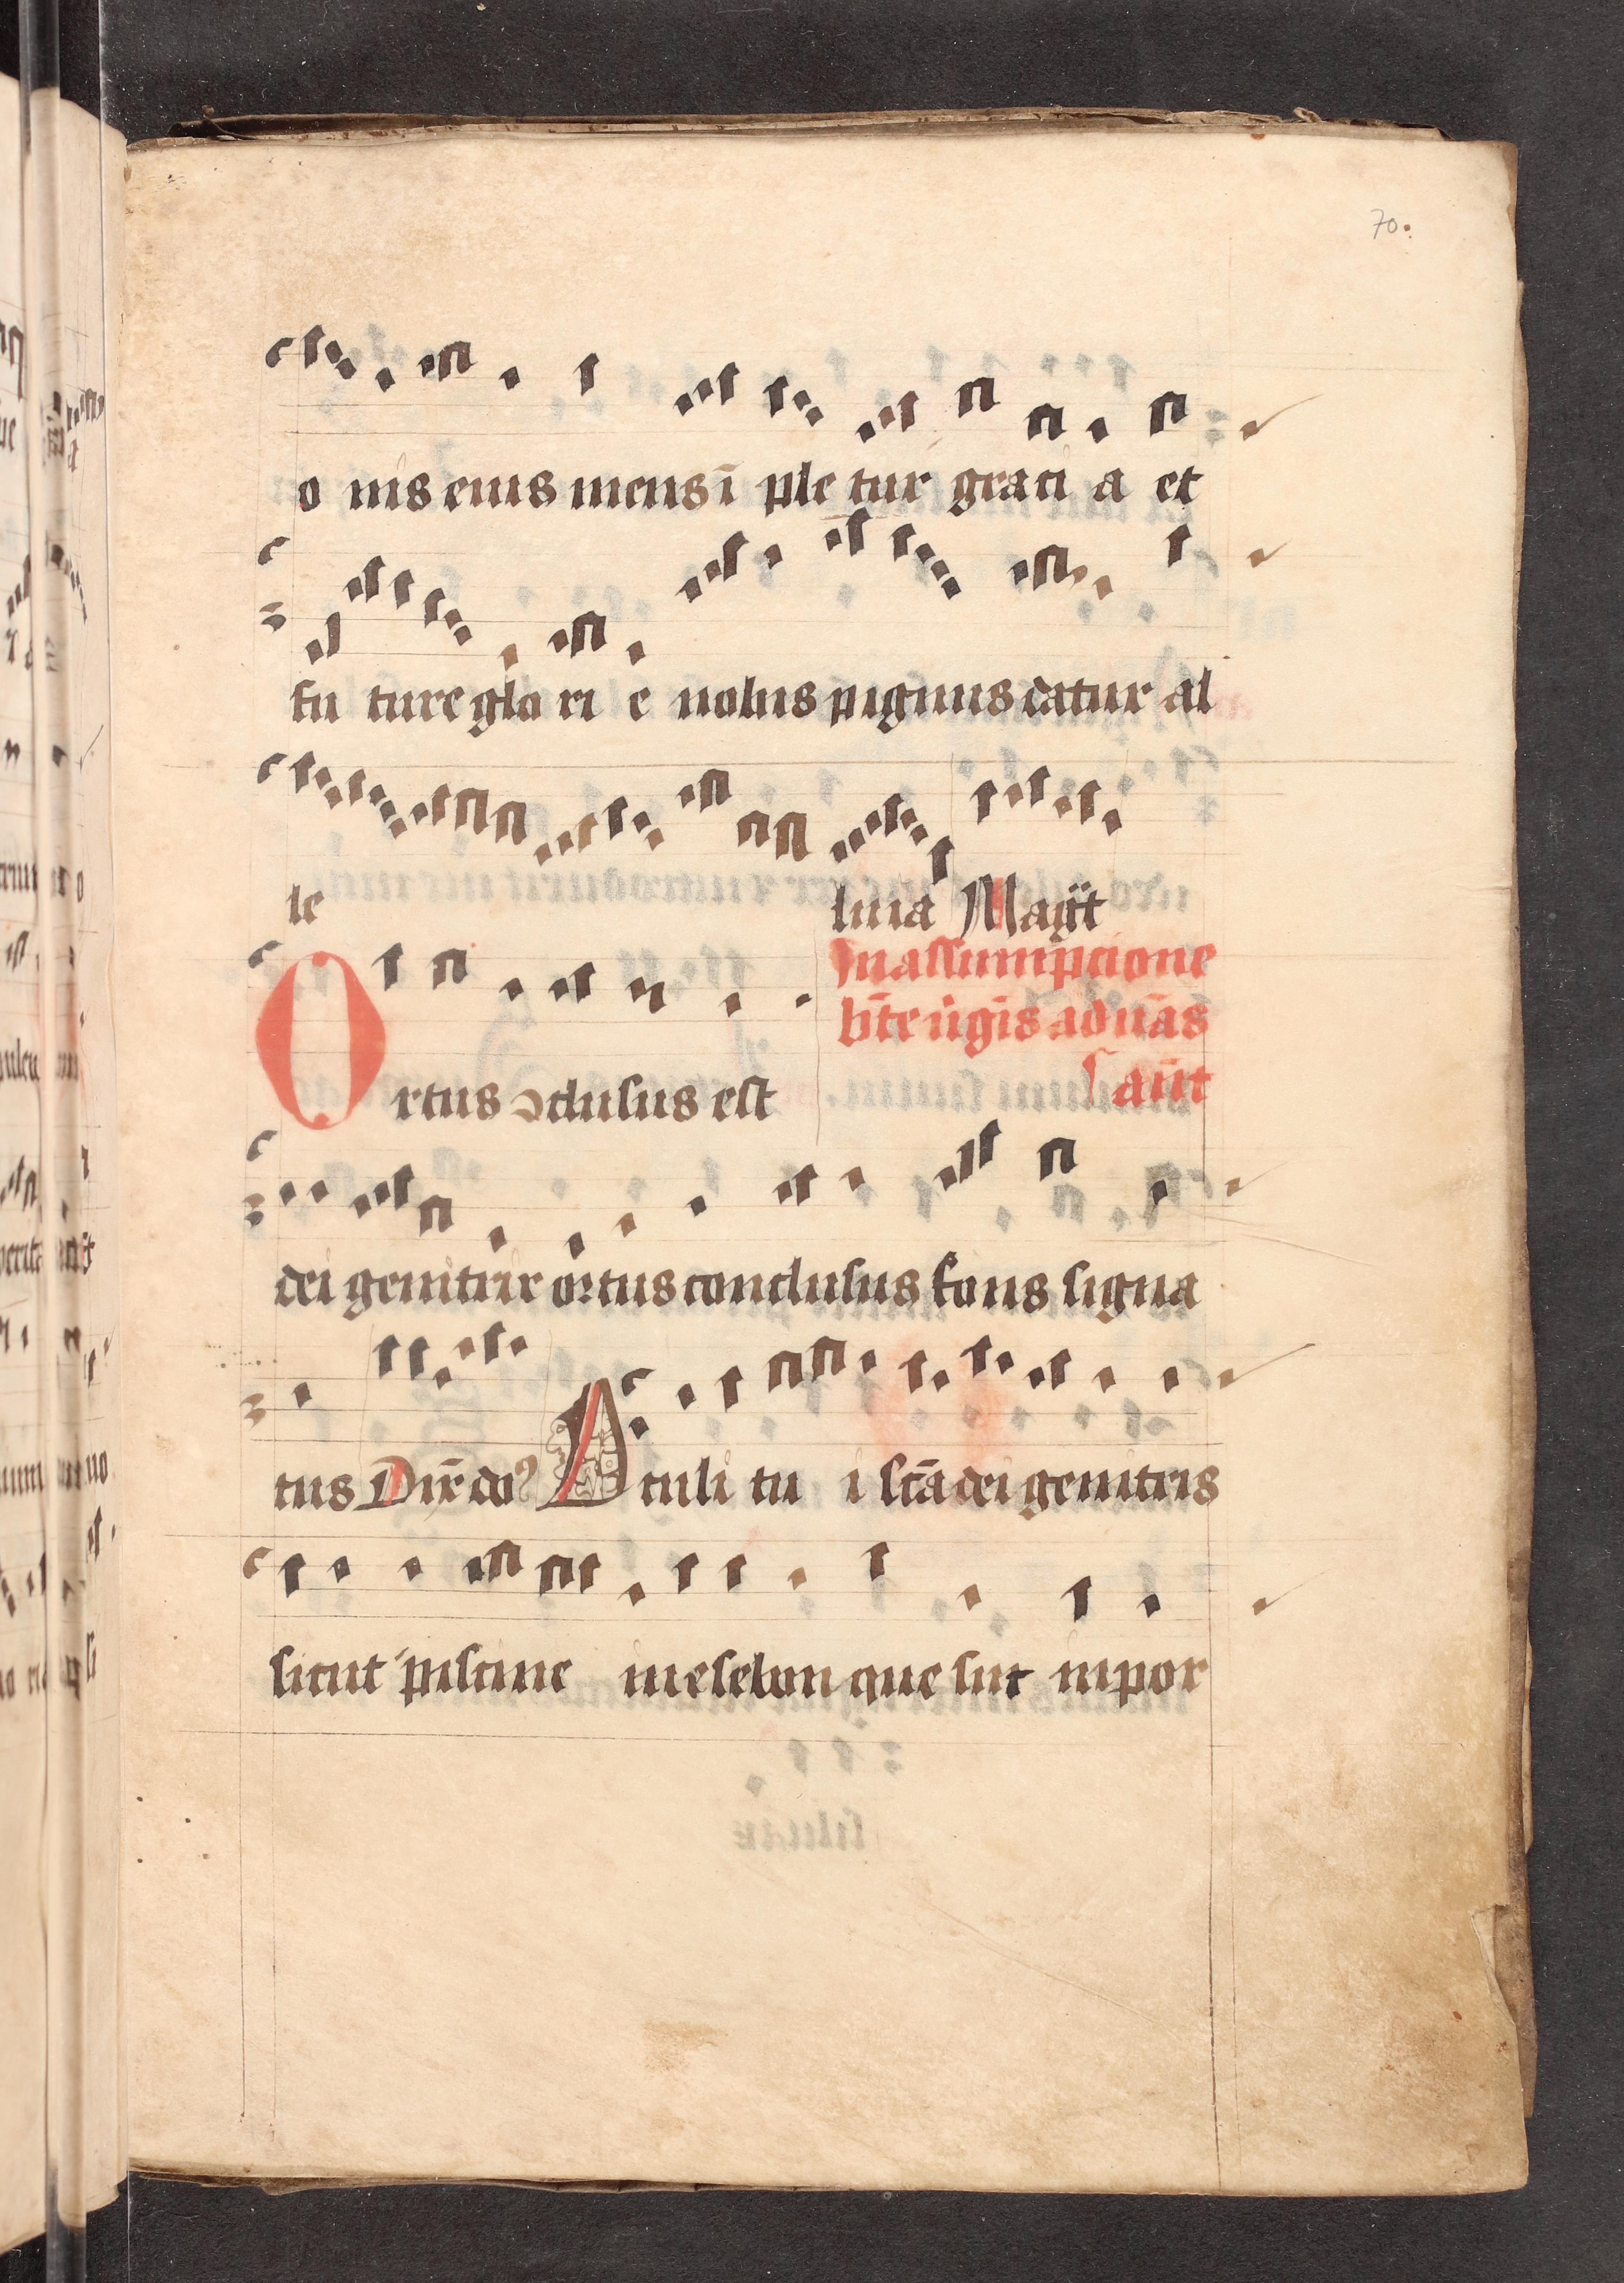 70.
o nis eius mens ī ple tur graci a et
fu ture glo ri e nobis pignus datur al
le luia Magāt
In assumpcione
bt̄e ūgīs ad uās
Ortus ↄclusus est
s añt
dei genitrix ortus conclusus fons signa
tus Dix̄ do⁹ Aculi tu i sctā dei genitrix
sicut piscine in eselon que sūt in por